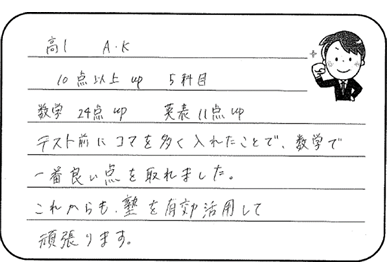 高1 A.K
10点以上 up 5科目
数学 24点 up 英表 11点 up
テスト前にコマを多く入れたことで、数学で
一番良い点を取れました。
これからも、塾を有効活用して
頑張ります。